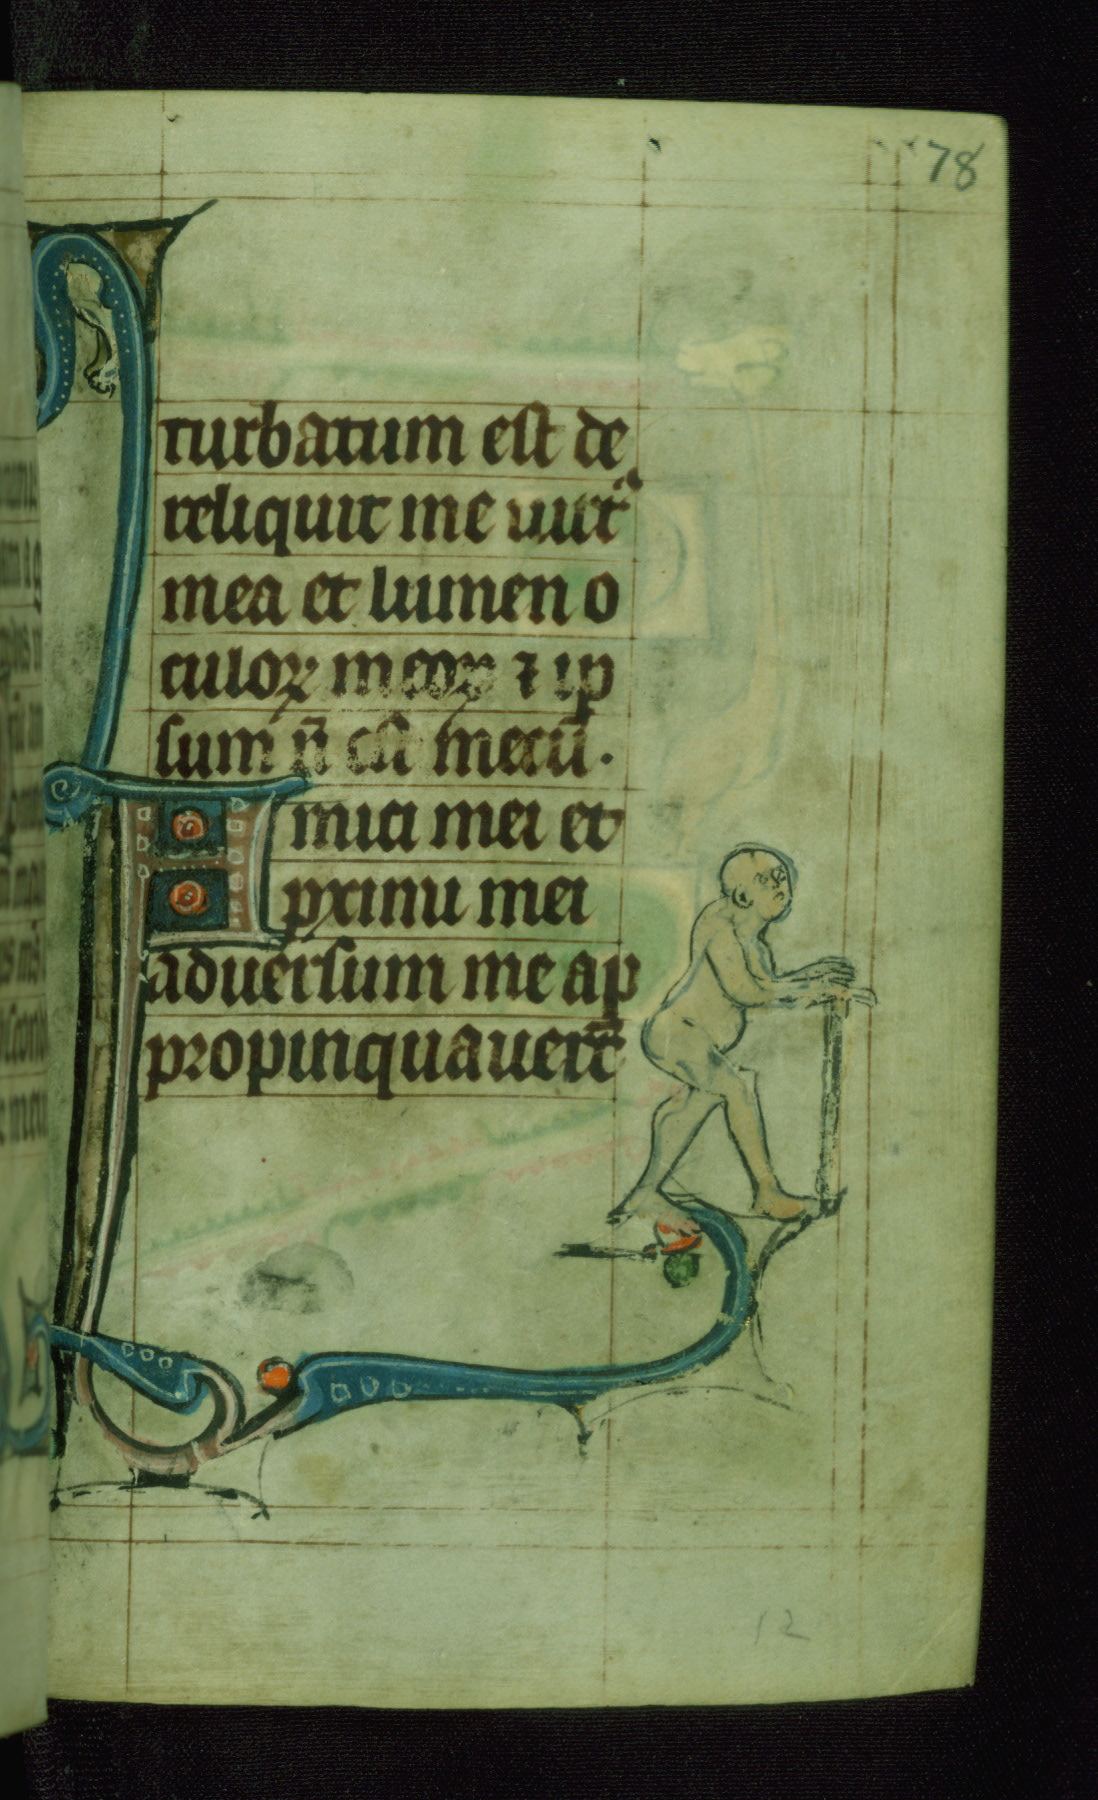 78
turbatum est de
reliquit me uirt᷒
mea et lumen o
culoꝝ meoꝝ ⁊ ip
sum n̄ est mecū.
Amici mei et
pximi mei
aduersum me ap
propinquauert̄
12